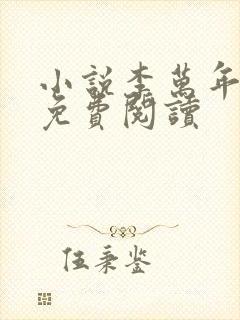 小說李萬年
免費閱讀
伍秉鉴